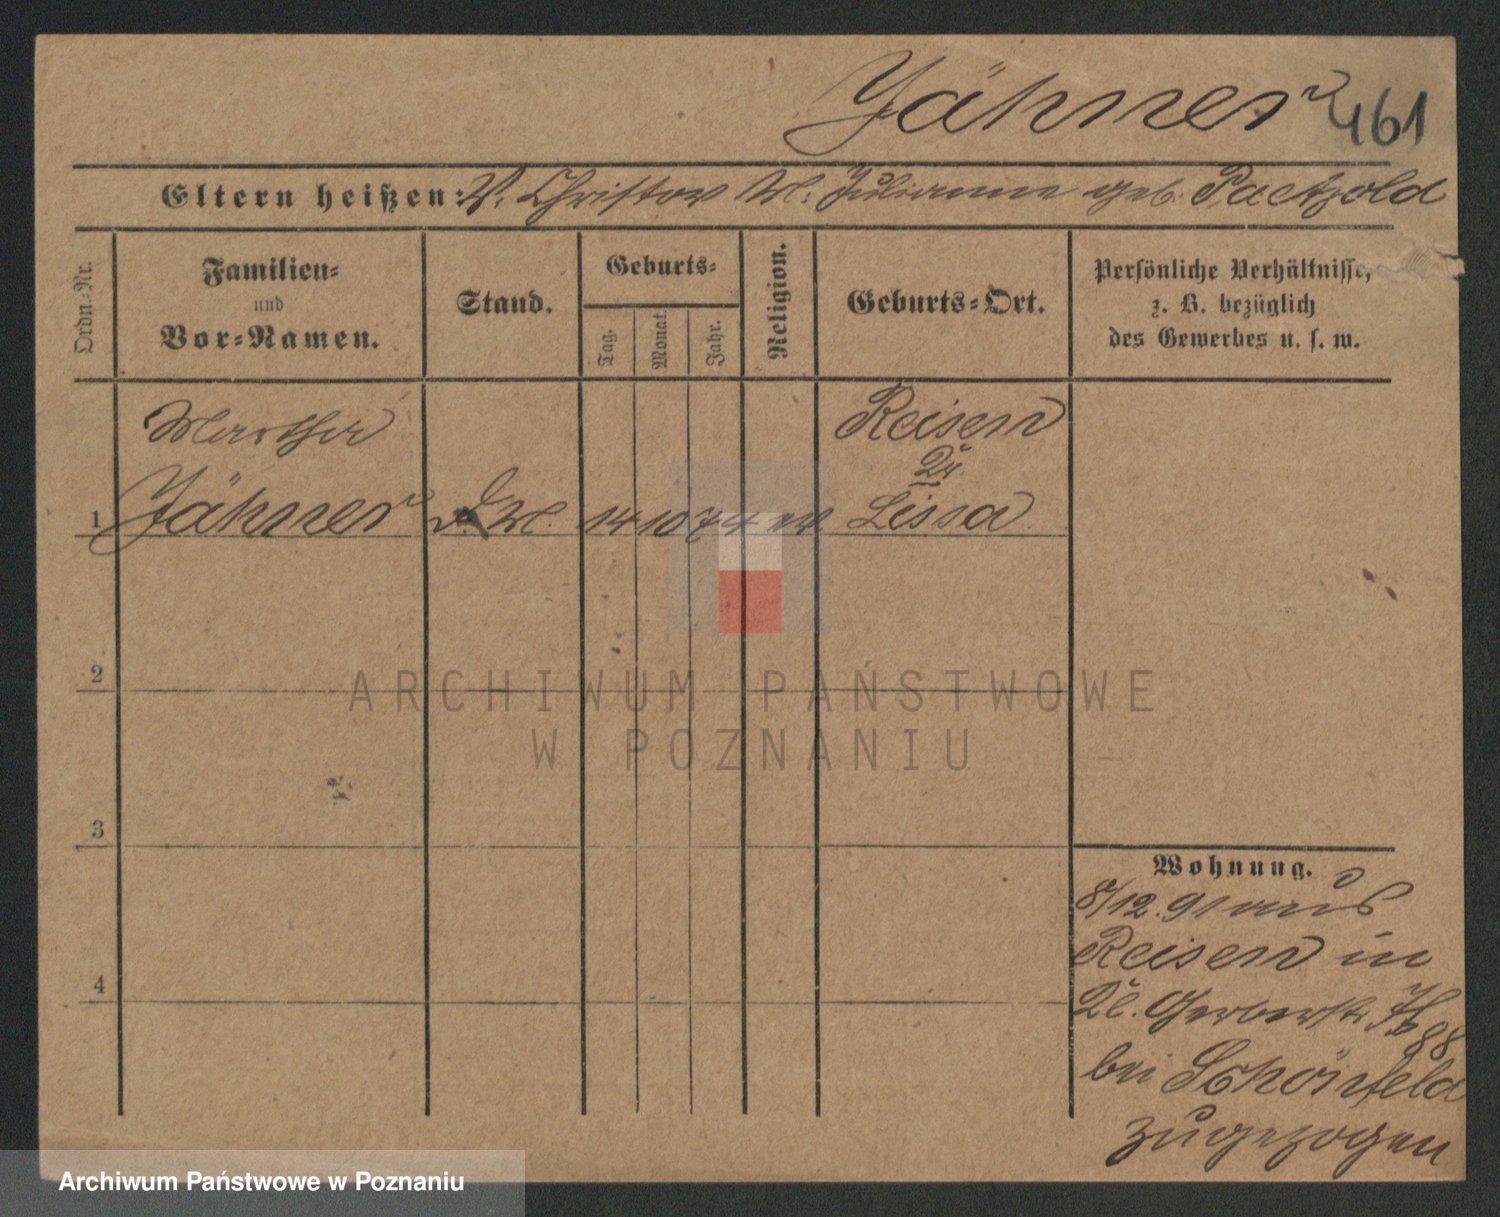 Jähner 461
Eltern heißen: V. Christof M: Julianne geb. Paetzold
Ordn.=Nr.
Familien=
und
Vor=Namen.
Stand.
Geburts=
Tag.
Monat.
Jahr.
Religion.
Geburts=Ort.
Persönliche Verhältnisse,
z. B. bezüglich
des Gewerbes u. s. w.
Martha
Reisen
Kr.
1 Jähner 14 10 74 ev Lissa
2
3
4
Wohnung.
8/12. 91 aus
Reisen in
Gerberstr.
bei Schönfeld
zugezogen
ARCHIWUM PAŃSTWOWE
W POZNANIU
Archiwum Państwowe w Poznaniu